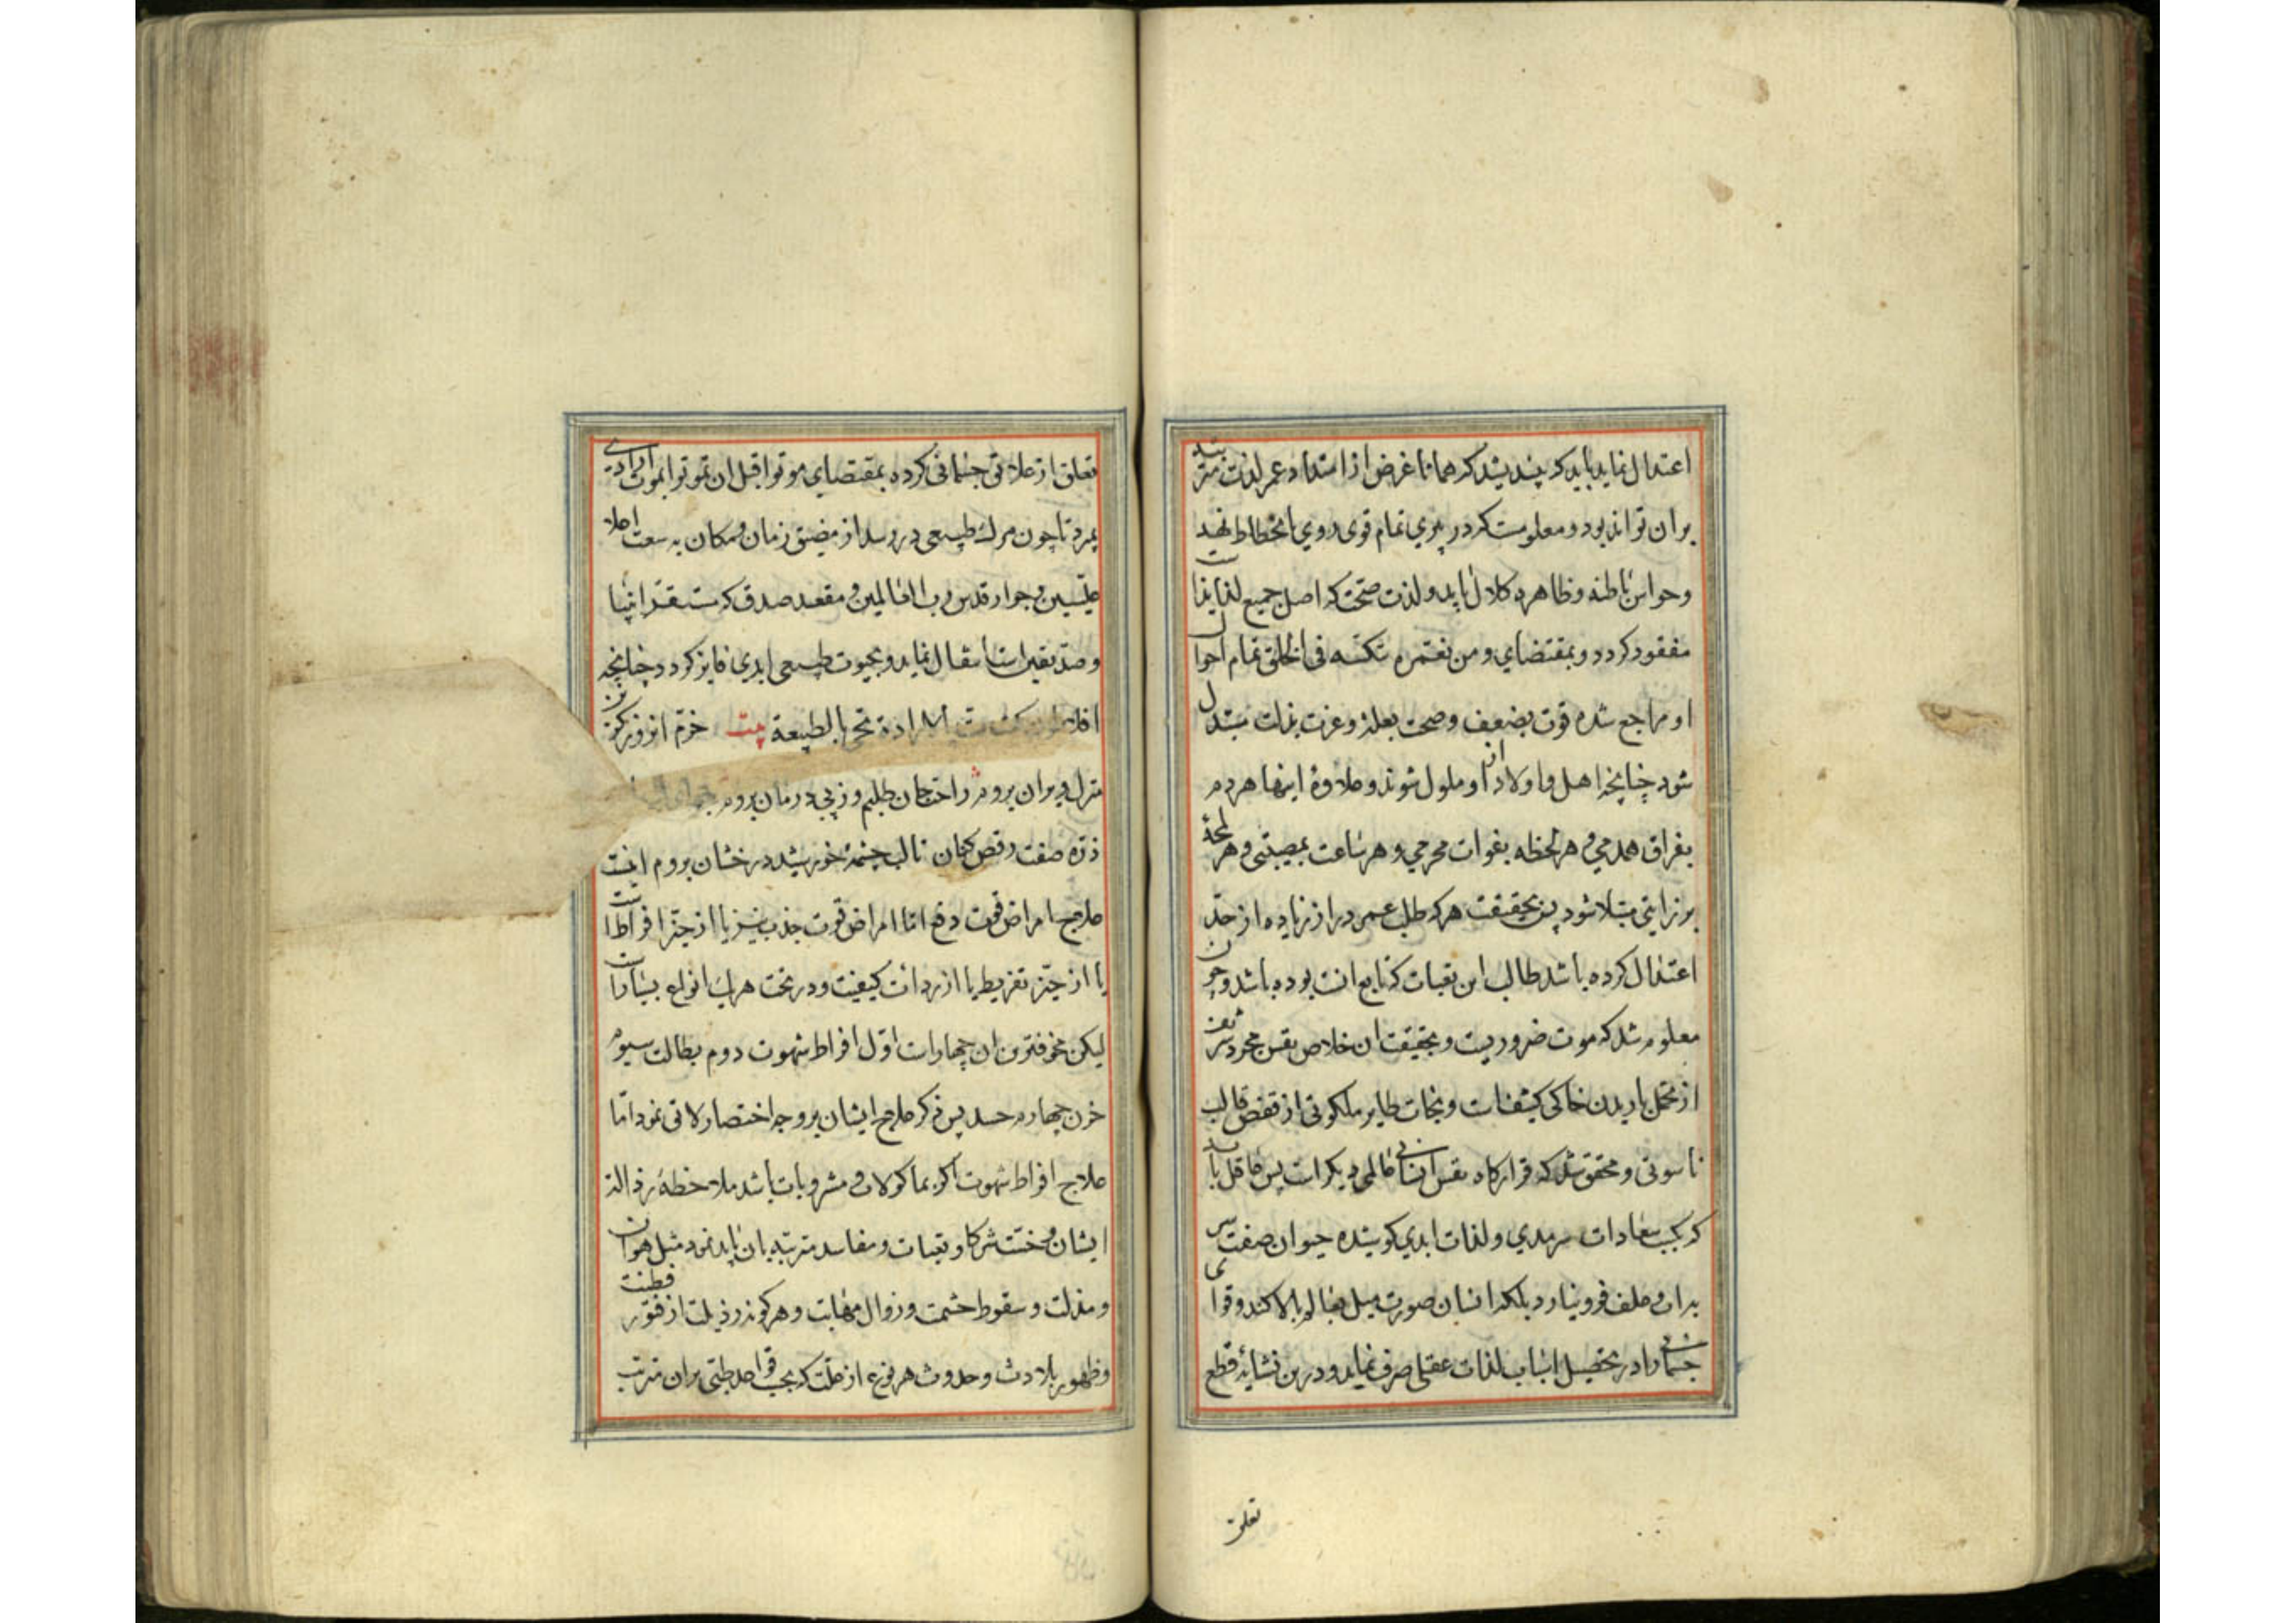 اعتدال نماید باید که پندیشد که همانا غرض از امتداد عمر لذت مترتبه
بران تواند بود و معلومست که در پیری تمام قوی روی بانحطاط نهد
وحواس باطنه و ظاهره کلال یابد و لذت صحت که اصل جمیع لذایذاست
مفقود کردد و بمقتضای ومن نعمره ننکسه فی الخلق تمام احوال
او مراجع شده قوت بضعف و صحت بعلة و عزت بذلت متبدل
شود چنانچه اهل و اولاد از او ملول شوند و علاوۀ اینها هر دم
بفراق همدمی و هر لحظه بفوات محرمی و هر ساعت بمصیبتی و هر لمحۀ
برزایتی مبتلا شود پس بحقیقت هرکه طلب عمر دراز زیاده از حد
اعتدال کرده باشد طالب این تعبات که تابع انست بوده باشد و چون
معلوم شد که موت ضروریست و بحقیقت ان خلاص نفس مجرد شریف
از تحمل بار بدن خاکی کثیفات و نجات طایر ملکوتی از قفص قالب
ناسوتی و محقق شد که قرارکاه نفس انسانی عالمی دیکر است پس عاقل باید
که بکسب سعادات سرمدی و لذات ابدی کوشیده حیوان صفت سر
بدان و علف فرو نیارد بلکه انسان صورت میل بعالم بالا کند و قوای
جسمانی را در تحصیل اسباب لذات عقلی صرف نماید و درین نشاءۀ قطع
تعلق
تعلق از علایق جسمانی کرده بمقتضای موتوا قبل ان تموتوا بموت ارادی
بمیرد تا چون مرک طبیعی در رسد از مضیق زمان و مکان به سعت اعلا
علیین و جوار قدس رب العالمین و مقعد صدق که مستقر انبیا
و صدیقین است انتقال نماید و بحیوت طبیعی ابدی فایز کردد چنانچه
افلاطون کفت مت بالارادة تحی بالطبیعة بیت خرم انروز کزین
منزل ویران بروم راحت جان طلبم وز پی درمان بروم
ذره صفت رقص کنان تا لب چشمۀ خورشید درخشان بروم اینست
علاج امراض قوت دفع اما امراض قوت جذب نیز یا از حیز افراط است
یا از حیز تفریط یا از رداءت کیفیت و در تحت هریک انواع بسیار است
لیکن مخوفترین ان چهار است اول افراط شهوت دوم بطالت سیوم
حزن چهارم حسد پس ذکر علاج ایشان بر وجه اختصار لایق نمود اما
علاج افراط شهوت اکر بماکولات و مشروبات باشد ملاحظۀ رذالة
ایشان و خست شرکا و تبعات و مفاسد مترتبه بان باید نمود مثل هوان
و مذلت و سقوط حشمت و زوال مهابت و هرکونه رذیلت از فتور فطنت
و ظهور بلادت و حدوث هر نوع از علت که بحسب قواعد طبی بران مترتب